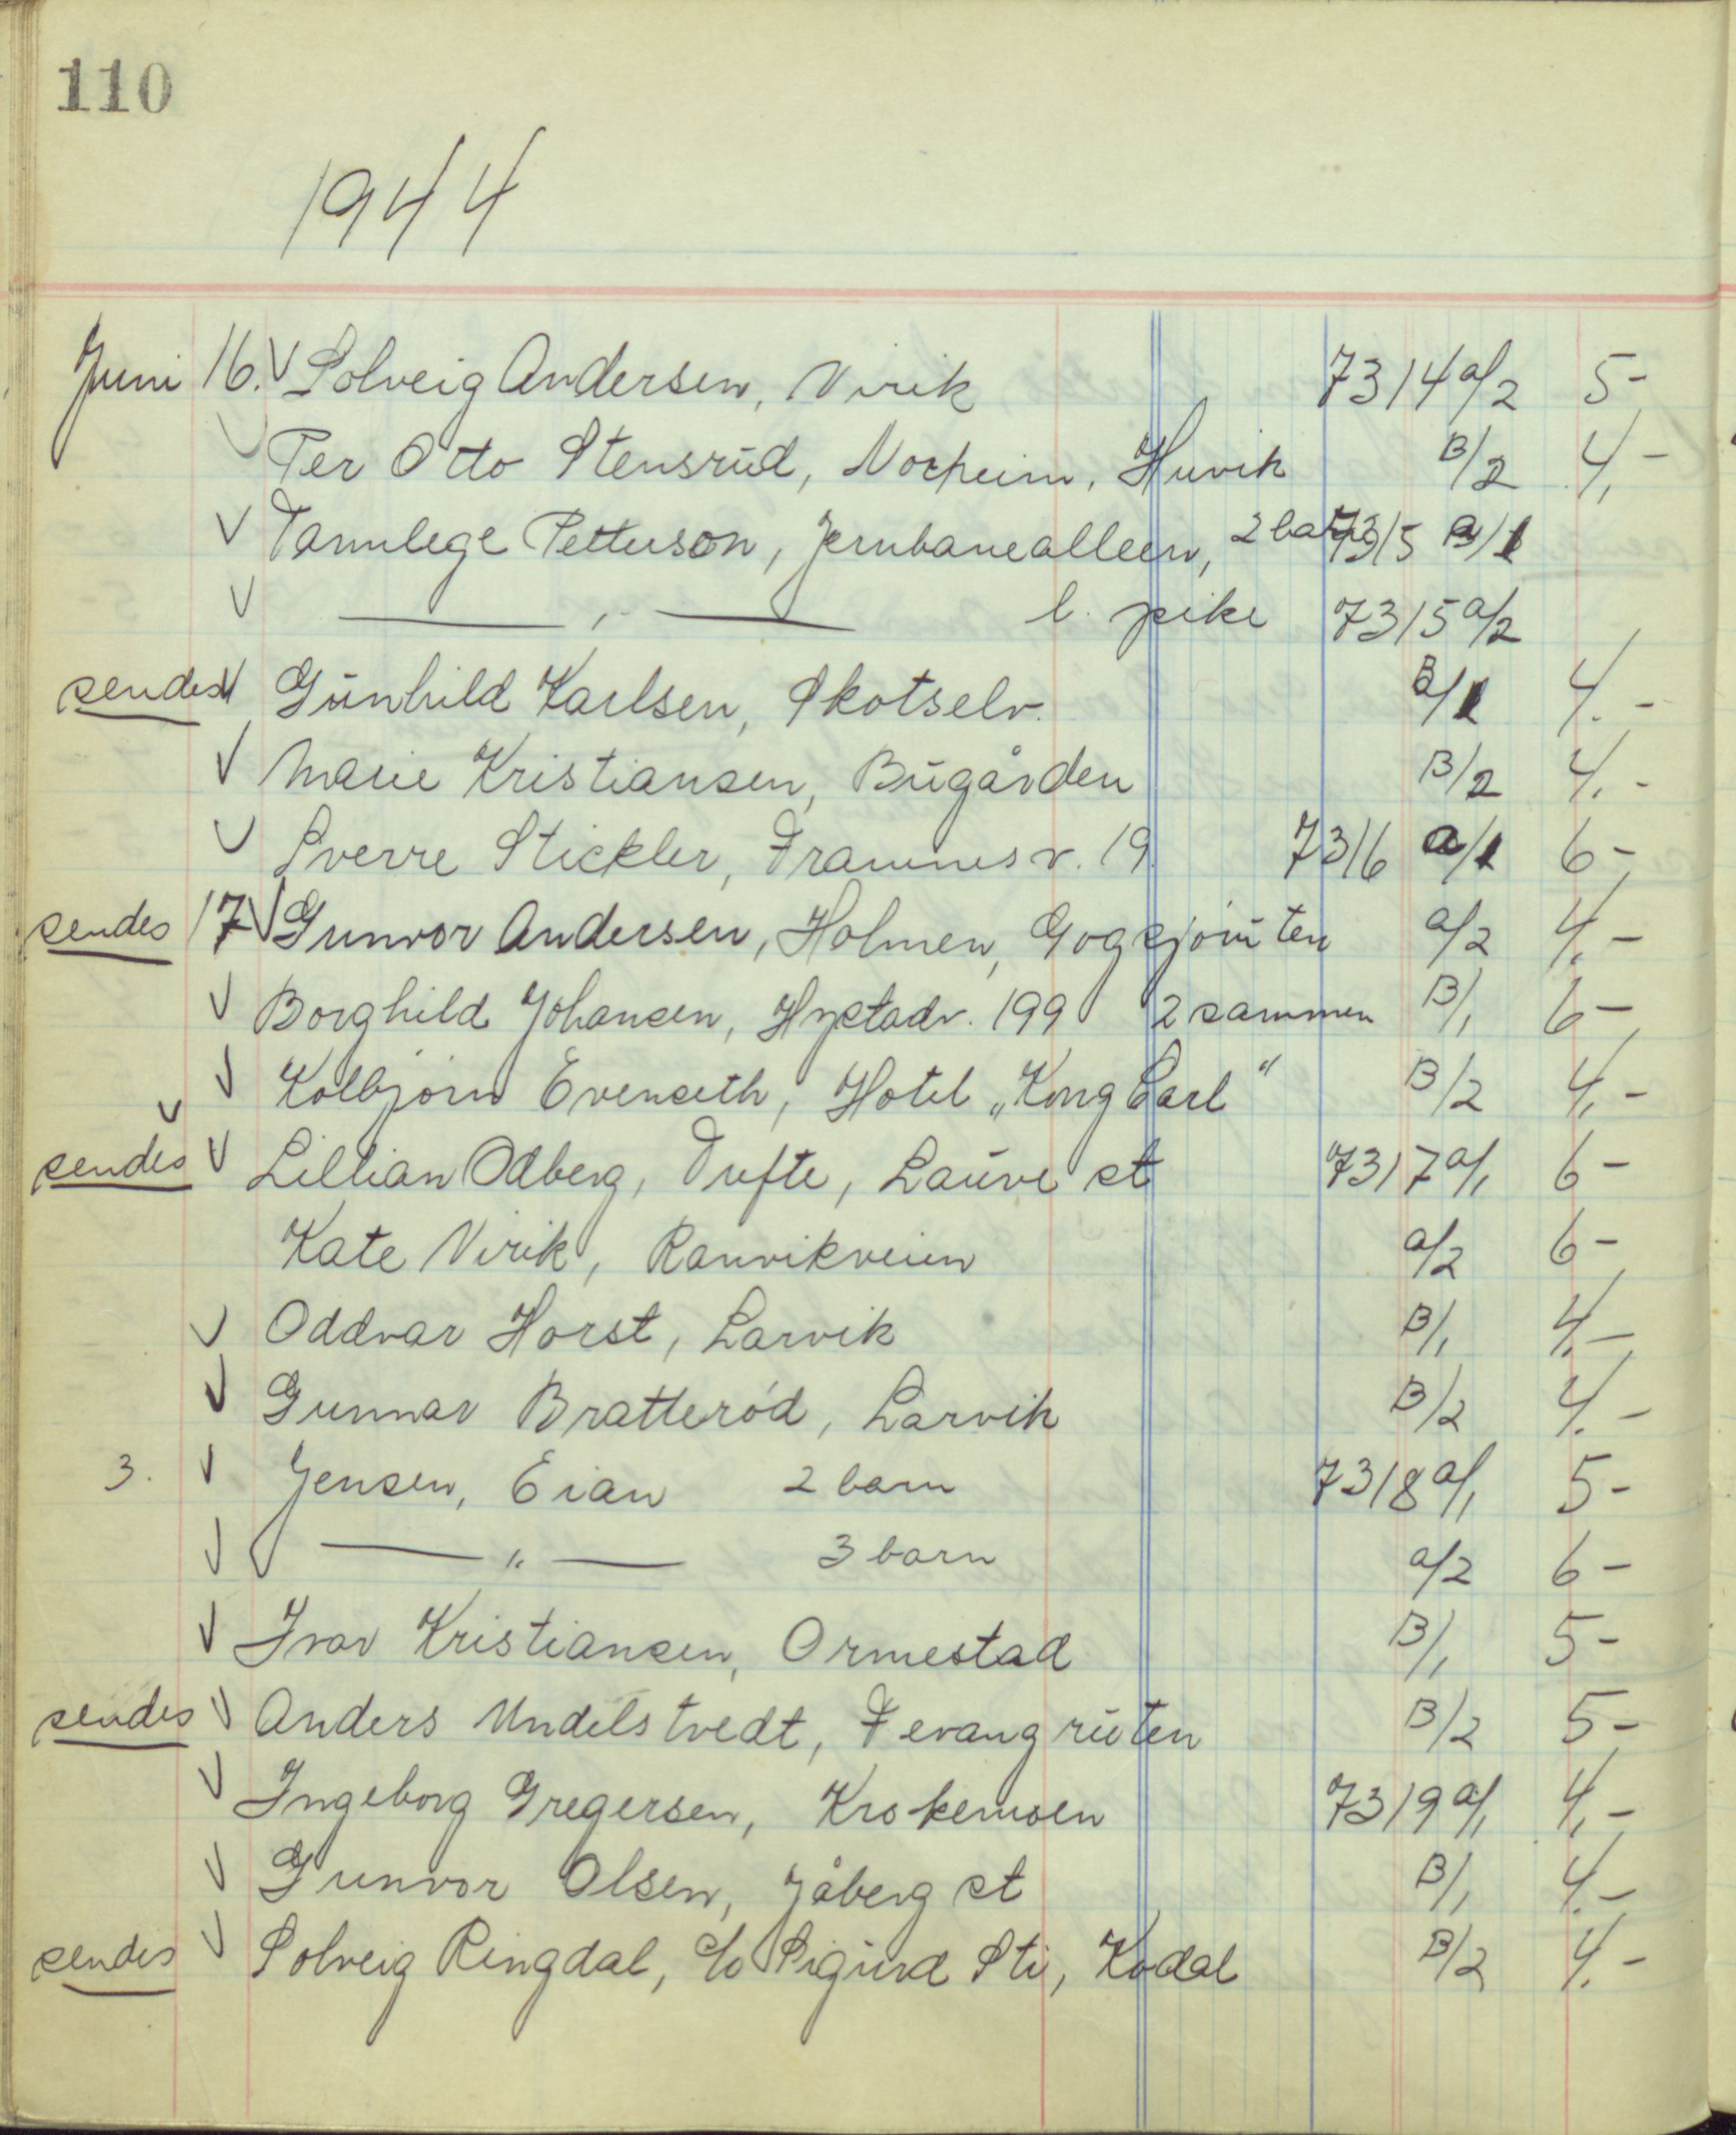 110
1944
Juni 16. V Solveig Andersen, Virik 7314 a/2 5-
V Per Otto Stensrud, Norheim, Huvik B/2 4,-
V Tannlege Pettersen, Jernbanealleen, 2 barn 7315 a/1
V —— " —— l. pike 7315 a/2
sendes V Gunhild Karlsen, Skotselv. B/1 4.-
V Marie Kristiansen, Bugården B/2 4.-
V Sverre Stickler, Framnesv. 19 7316 a/1 6-
sendes 17 V Gunvor Andersen, Holmen, Gogsjøruten a/2 4.-
V Borghild Johansen, Hystadv. 199 2 sammen B/1 6-
V Kolbjørn Evenseth, Hotel „Kong Carl" B/2 4,-
V
sendes V Lillian Odberg, Tufte, Lauve st 7317 a/1 6-
Kate Virik, Ranvikveien a/2 6-
V Oddvar Horst, Larvik B/1 4.-
V Gunnar Bratterød, Larvik B/2 4.-
3. V Jensen, Eian 2 barn 7318 a/1 5-
V —— " —— 3 barn a/2 6-
V Ivar Kristiansen, Ormestad B/1 5-
sendes V Anders Undelstvedt, Fevangruten B/2 5-
V Ingeborg Gregersen, Krokemoen 7319 a/1 4,-
V Gunvor Olsen, Jåberg st B/1 4.-
sendes V Solveig Ringdal, c/o Sigurd Sti, Kodal B/2 4.-